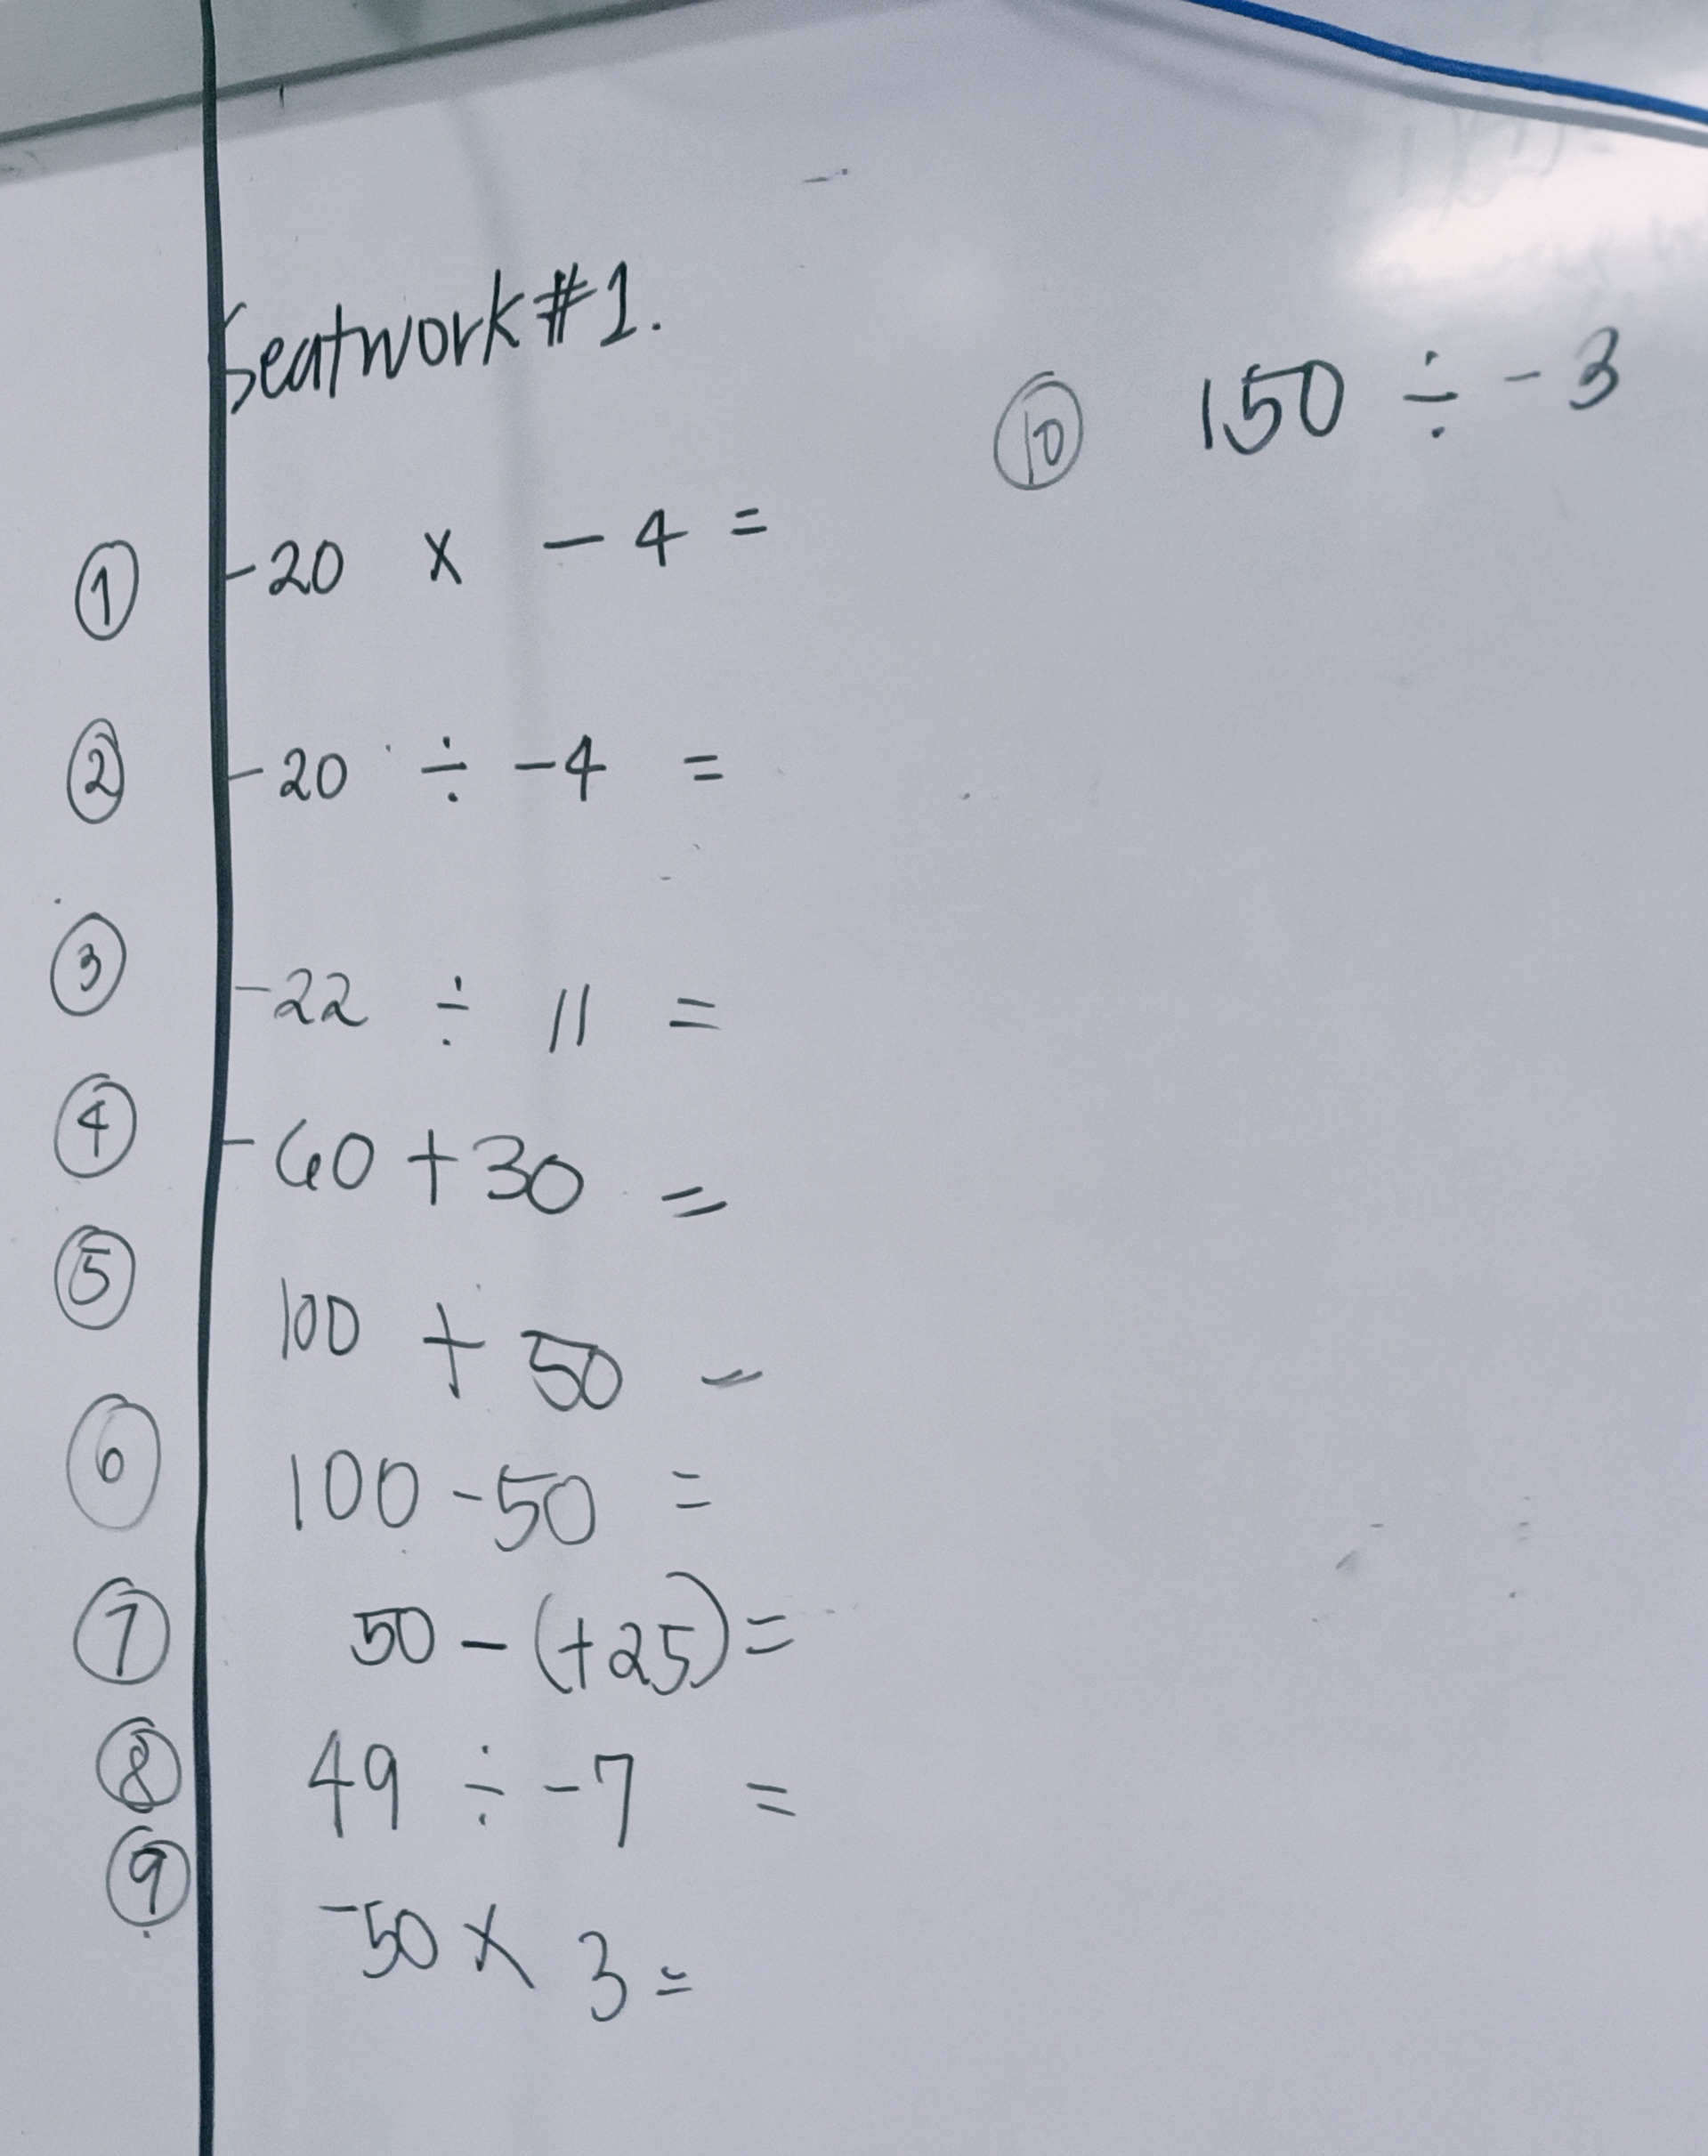 Seatwork #1.
① -20 x - 4 =
② -20 ÷ -4 =
③ -22 ÷ 11 =
④ -60 + 30 =
⑤ 100 + 50 =
⑥ 100 - 50 =
⑦ 50 - (+25) =
⑧ 49 ÷ -7 =
⑨ -50 x 3 =
⑩ 150 ÷ - 3